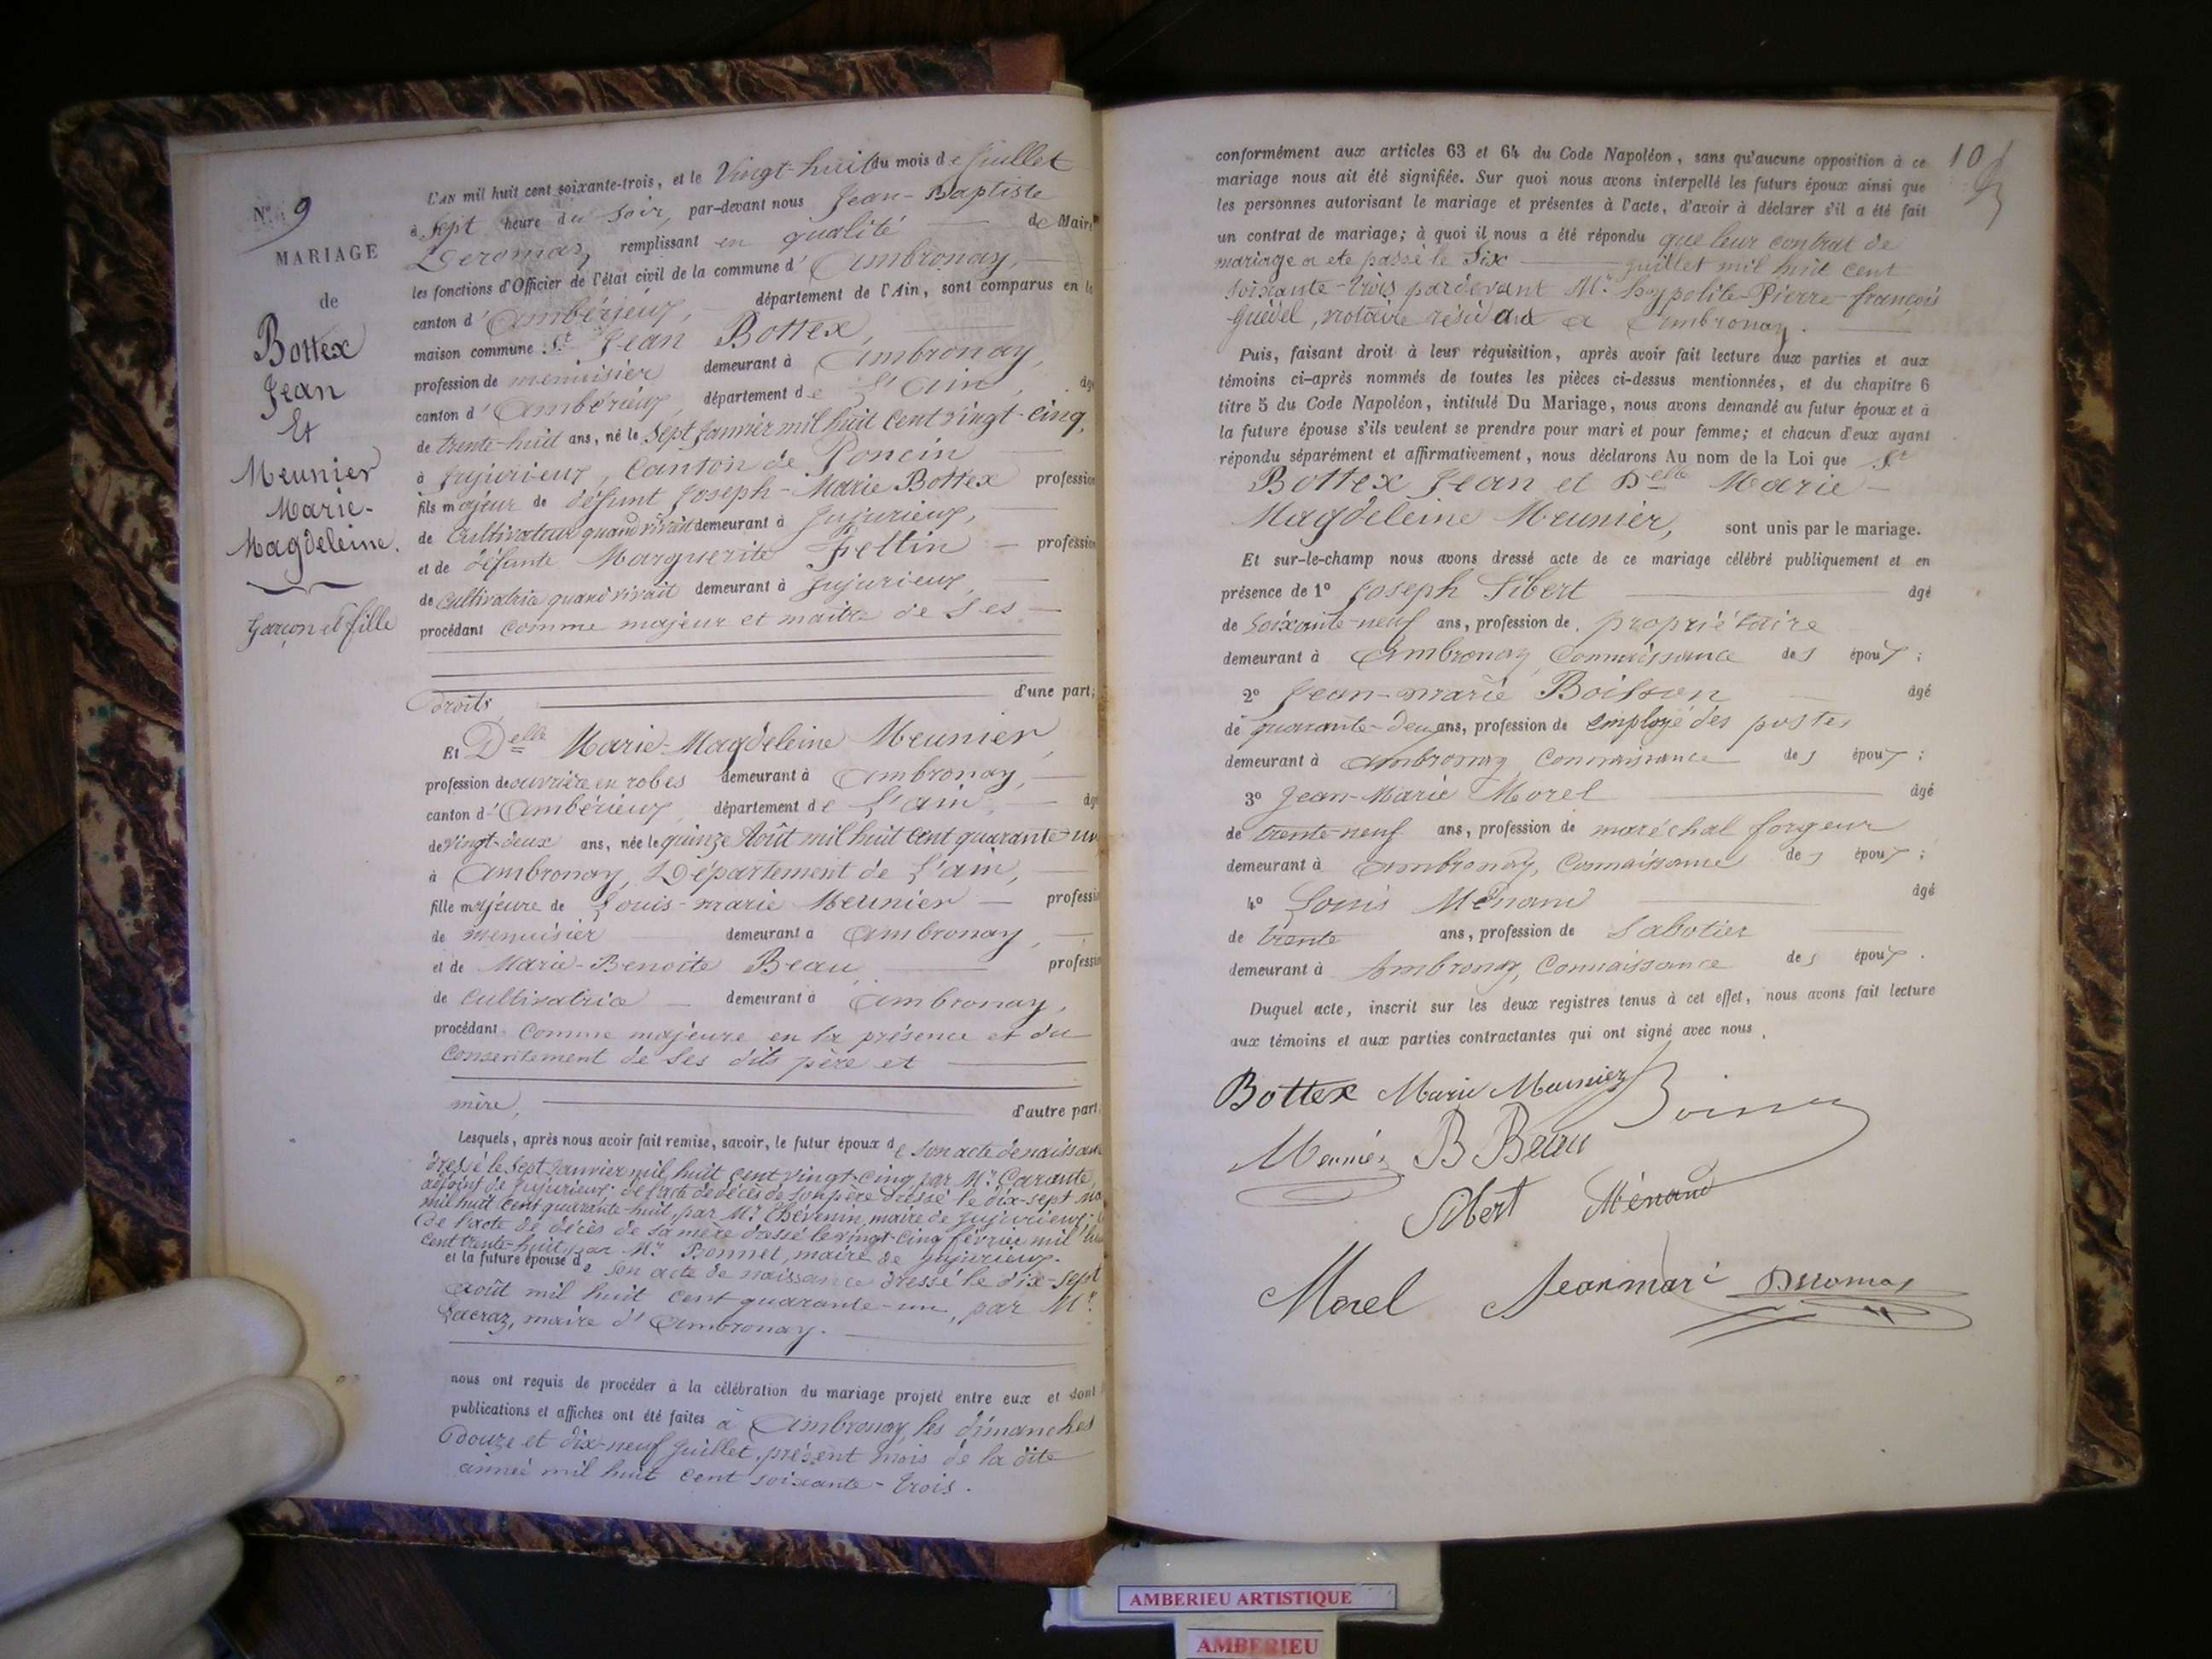 N° 9
MARIAGE
de
Bottex
Jean
Et
Meunier
Marie-
Magdeleine.
Garçon et fille
L'AN mil huit cent soixante-trois, et le Vingt-huit du mois de Juillet
à Sept heure du Soir, par-devant nous Jean-Baptiste
Deromas, remplissant en qualité de Maire
les fonctions d'Officier de l'état civil de la commune d'Ambronay,
canton d'Ambérieux, département de l'Ain, sont comparus en la
maison commune Sr Jean Bottex,
profession de menuisier demeurant à Ambronay,
canton d'Ambérieux, département de L'Ain, âgé
de trente-huit ans, né le Sept Janvier mil huit cent vingt-cinq,
à Jujurieux, Canton de Poncin
fils majeur de défunt Joseph-Marie Bottex profession
de Cultivateur quand vivait demeurant à Jujurieux,
et de défunte Marguerite profession
de Cultivatrice quand vivait demeurant à Jujurieux,
procédant comme majeur et maître de Ses
droits, d'une part;
Et Delle Marie-Magdeleine Meunier,
profession de ouvrière en robes demeurant à Ambronay,
canton d'Ambérieux, département de L'Ain, âgé
de Vingt-deux ans, née le quinze Août mil huit cent quarante-un
à Ambronay, Département de L'ain,
fille majeure de Louis-marie Meunier profession
de menuisier demeurant à Ambronay,
et de Marie-Benoite Beau, profession
de Cultivatrice demeurant à Ambronay,
procédant Comme majeure en la présence et du
Consentement de Ses dits père et
mère, d'autre part,
Lesquels, après nous avoir fait remise, savoir, le futur époux de son acte de naissance
dressé le Sept Janvier mil huit cent vingt-cinq par Mr
adjoint de Jujurieux; de l'acte de décès de son père dressé le dix-sept
mil huit cent quarante-huit, par Mr Thévenin, maire de Jujurieux;
de l'acte de décès de sa mère dressé le vingt-cinq février mil huit
cent trente-huit, par Mr Bonnet, maire de Jujurieux.
et la future épouse de Son acte de naissance dressé le dix-sept
Août mil huit cent quarante-un, par Mr
Lacraz, maire d'Ambronay.
nous ont requis de procéder à la célébration du mariage projeté entre eux et dont
publications et affiches ont été faites à Ambronay, les dimanches
douze et dix-neuf Juillet, présent mois de la dite
année mil huit cent soixante-trois.
10
conformément aux articles 63 et 64 du Code Napoléon, sans qu'aucune opposition à ce
mariage nous ait été signifiée. Sur quoi nous avons interpellé les futurs époux ainsi que
les personnes autorisant le mariage et présentes à l'acte, d'avoir à déclarer s'il a été fait
un contrat de mariage; à quoi il nous a été répondu que leur contrat de
mariage a été passé le Six Juillet mil huit cent
Soixante-trois pardevant Mr hypolite-Pierre-françois
Guédel, notaire résidant à Ambronay.
Puis, faisant droit à leur réquisition, après avoir fait lecture aux parties et aux
témoins ci-après nommés de toutes les pièces ci-dessus mentionnées, et du chapitre 6
titre 5 du Code Napoléon, intitulé Du Mariage, nous avons demandé au futur époux et à
la future épouse s'ils veulent se prendre pour mari et pour femme; et chacun d'eux ayant
répondu séparément et affirmativement, nous déclarons Au nom de la Loi que Sr
Bottex Jean et Delle Marie-
Magdeleine Meunier, sont unis par le mariage.
Et sur-le-champ nous avons dressé acte de ce mariage célébré publiquement et en
présence de 1° Joseph Sibert âgé
de Soixante-neuf ans, profession de propriétaire
demeurant à Ambronay, Connaissance des époux;
2° Jean-marie Boisson âgé
de quarante-deux ans, profession de employé des postes
demeurant à Ambronay, Connaissance des époux;
3° Jean-Marie Morel âgé
de trente-neuf ans, profession de maréchal forgeur
demeurant à Ambronay, Connaissance des époux;
4° Louis Ménand âgé
de trente ans, profession de Sabotier
demeurant à Ambronay, Connaissance des époux.
Duquel acte, inscrit sur les deux registres tenus à cet effet, nous avons fait lecture
aux témoins et aux parties contractantes qui ont signé avec nous.
Bottex Marie Meunier
Meunier B Beau
Sibert Ménand
Morel Jeanmari Deromas
AMBERIEU ARTISTIQUE
AMBERIEU